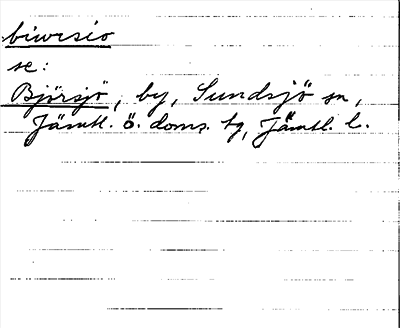 biwrsio
se:
Björsjö, by, Sundsjö sn,
Jämtl. ö. doms. tg, Jämtl. l.